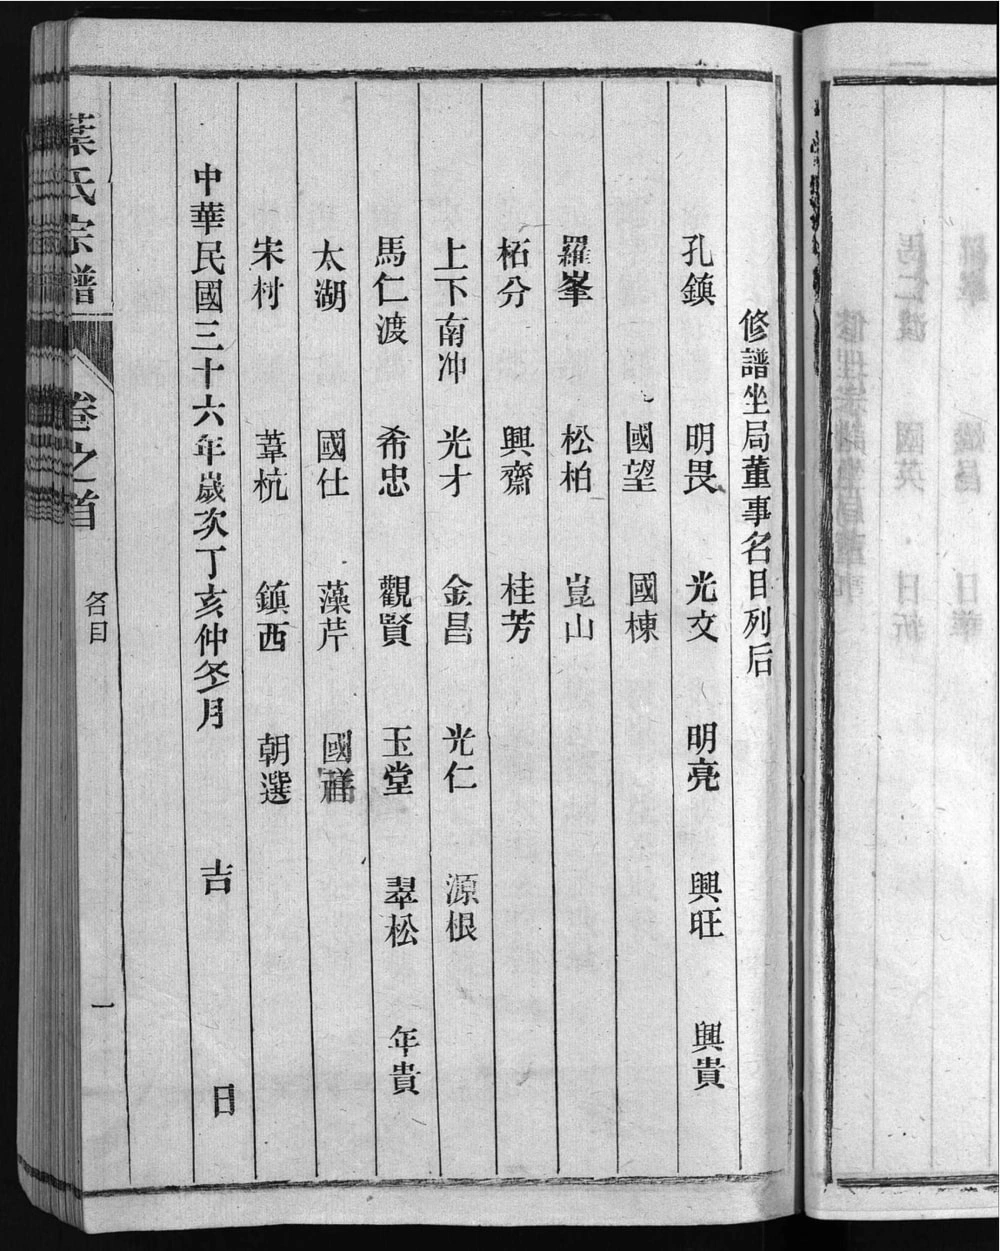 修譜坐局董事名目列后
孔鎮 明畏 光文 明亮 興旺 興貴
國望 國棟
羅峯 松柏 崑山
柘分 興齋 桂芳
上下南冲 光才 金昌 光仁 源根
馬仁渡 希忠 觀賢 玉堂 翠松 年貴
太湖 國仕 藻芹 國
宋村 葦杭 鎮西 朝選
中華民國三十六年歲次丁亥仲冬月 吉 日
葉氏宗譜 卷之首 各目 一